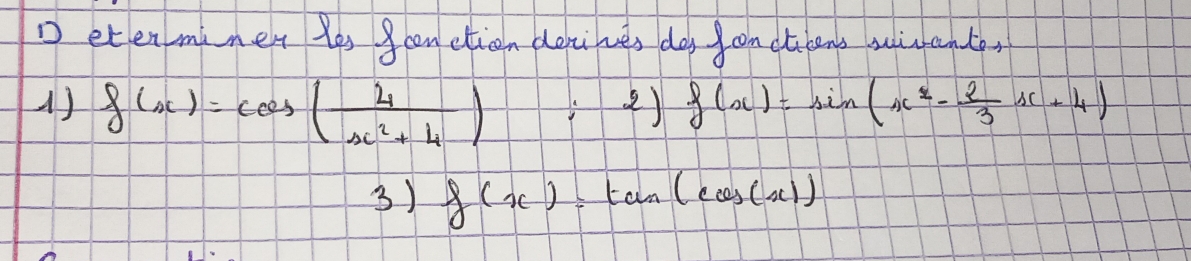 Determiner les fonction derivés des fonctions suivantes
1) f(x) = cos(4/(x²+4)) ; 2) f(x) = sin(x² - 2/3 x + 4)
3) f(x) = tan(cos(x))